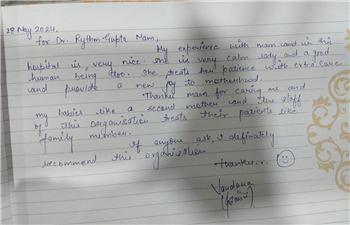 28 May 2024.
for Dr. Rythm Gupta Mam,
My experience with mam and in this
hospital is, very nice. She is very calm lady and a good
human being too. She treats her patience with extra care
and provide a new joy to motherhood.
Thanks mam for caring me and
my babies like a second mother and the staff
of this organisation treats their patients like
family member.
if anyone ask, I definately
recommend this organisation
thanks...
Vandana